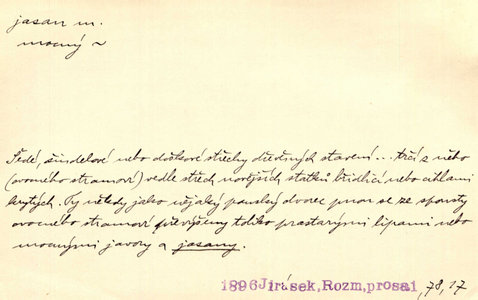 jasan m.
mocný ~
Šedé, šindelové nebo doškové střechy dřevěných stavení... trčí z něho
(ovocného stromoví) vedle střech novějších statků břidlicí nebo cihlami
krytých. Ty někdy jako nějaký panský dvorec pnou se ze spousty
ovocného stromoví převýšeny toliko prastarými lípami nebo
mocnými javory a jasany.
1896 Jirásek, Rozm, prosa 1, 78, 17